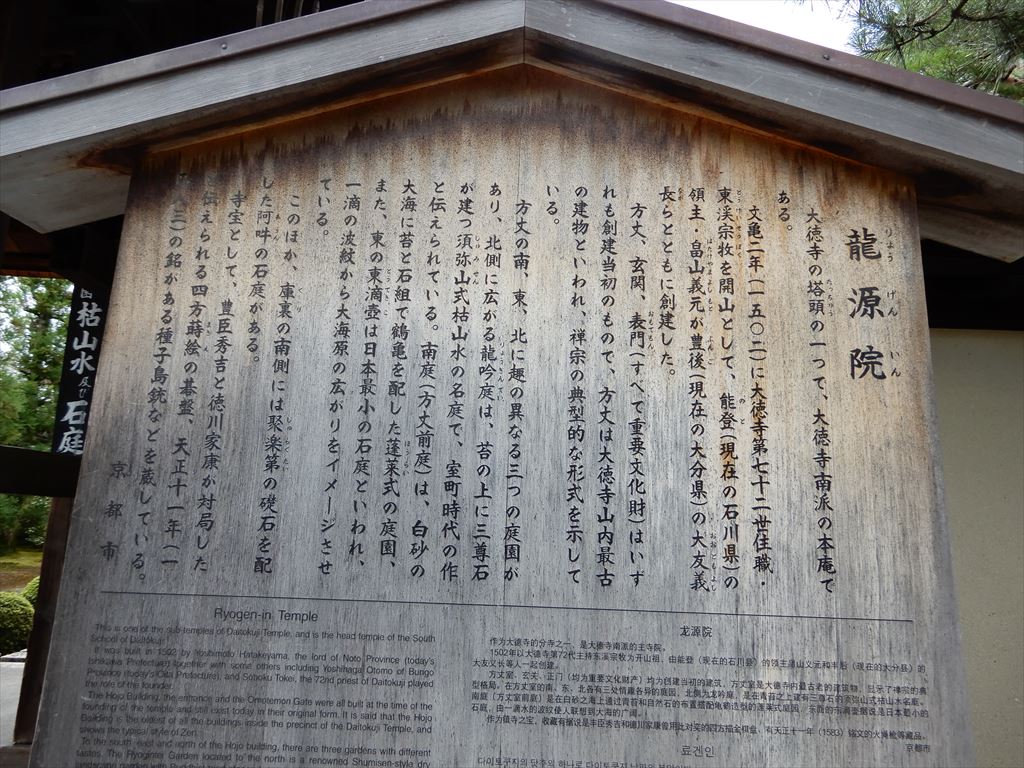 龍源院
りょうげんいん
大徳寺の塔頭の一つで、大徳寺南派の本庵で
たっちゅう
ある。
文亀二年(一五〇二)に大徳寺第七十二世住職・
東渓宗牧を開山として、能登(現在の石川県)の
領主・畠山義元が豊後(現在の大分県)の大友義
長らとともに創建した。
方丈、玄関、表門(すべて重要文化財)はいず
れも創建当初のもので、方丈は大徳寺山内最古
の建物といわれ、禅宗の典型的な形式を示して
いる。
方丈の南、東、北に趣の異なる三つの庭園が
あり、北側に広がる龍吟庭は、苔の上に三尊石
が建つ須弥山式枯山水の名庭で、室町時代の作
と伝えられている。南庭(方丈前庭)は、白砂の
大海に苔と石組で鶴亀を配した蓬莱式の庭園、
また、東の東滴壺は日本最小の石庭といわれ、
一滴の波紋から大海原の広がりをイメージさせ
ている。
このほか、庫裏の南側には聚楽第の礎石を配
した阿吽の石庭がある。
寺宝として、豊臣秀吉と徳川家康が対局した
伝えられる四方蒔絵の碁盤、天正十一年(一
三)の銘がある種子島銃などを蔵している。
京都市
枯山水及び石庭
Ryogen-in Temple
This is one of the sub-temples of Daitokuji Temple, and is the head temple of the South
School of Daitokuji.
It was built in 1502 by Yoshimoto Hatakeyama, the lord of Noto Province (today's
Ishikawa Prefecture) together with some others including Yoshinaga Otomo of Bungo
Province (today's Oita Prefecture), and Soboku Tokei, the 72nd priest of Daitokuji played
the role of the founder.
The Hojo Building, the entrance and the Omotemon Gate were all built at the time of the
founding of the temple and still stand today in their original form. It is said that the Hojo
Building is the oldest of all the buildings inside the precinct of the Daitokuji Temple, and
shows the typical style of Zen.
To the south, east and north of the Hojo building, there are three gardens with different
tastes. The Ryoginter Garden located to the north is a renowned Shumisen-style dry
龙源院
作为大德寺的分寺之一，是大德寺南派的主寺院。
1502年以大德寺第72代主持东溪宗牧为开山祖，由能登（现在的石川县）的领主畠山义元和丰后（现在的大分县）的
大友义长等人一起创建。
方丈室、玄关、正门（均为重要文化财产）均为创建当初的建筑，方丈室是大德寺内最古老的建筑物，显示了禅宗的典
型格局。在方丈室的南、东、北各有三处情趣各异的庭园，北侧为龙吟庭，
作为镇寺之宝，收藏有
京都市
료겐인